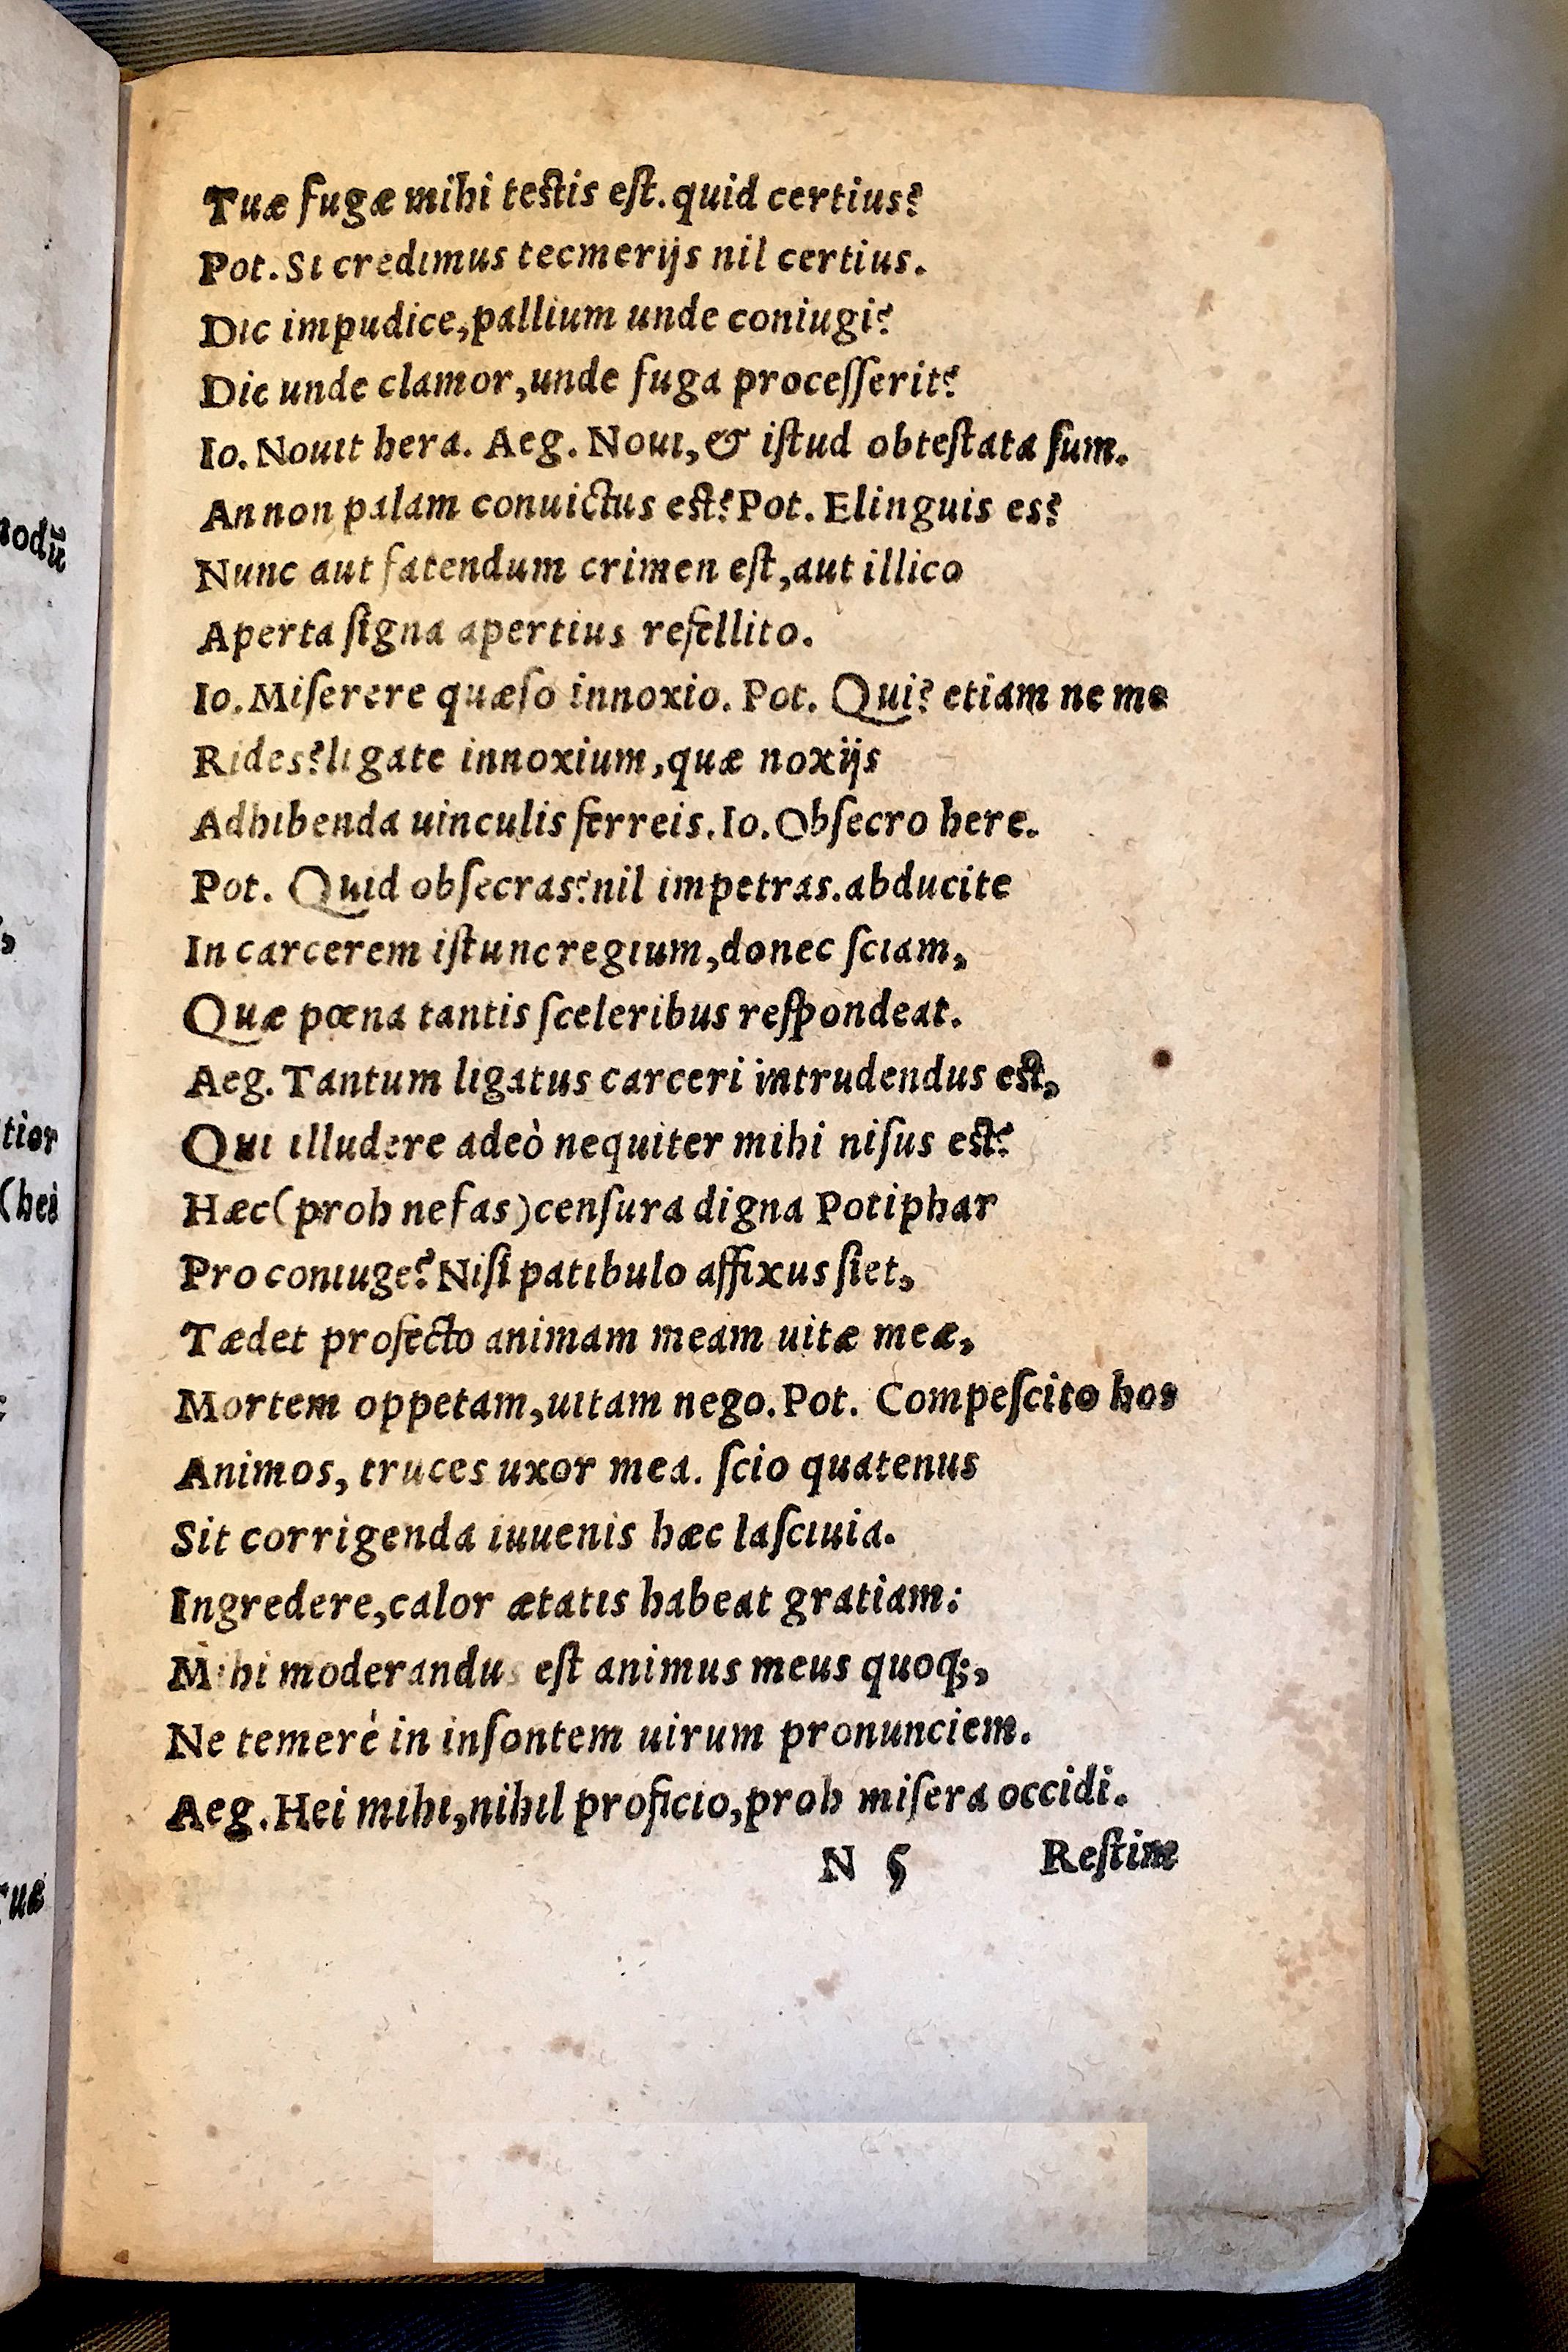 Tuæ fugæ mihi testis eſt. quid certius?
Pot. Si credimus tecmerijs nil certius.
Dic impudice, pallium unde coniugi?
Dic unde clamor, unde fuga proceſſerit?
Io. Nouit hera. Aeg. Noui, & iſtud obteſtata ſum.
Annon palam conuictus est? Pot. Elinguis es?
Nunc aut fatendum crimen eſt, aut illico
Aperta ſigna apertius refellito.
Io. Miſerere quæſo innoxio. Pot. Qui? etiam ne me
Rides? ligate innoxium, quæ noxijs
Adhibenda uinculis ferreis. Io. Obſecro here.
Pot. Quid obſecras? nil impetras. abducite
In carcerem iſtunc regium, donec ſciam,
Quæ pœna tantis ſceleribus reſpondeat.
Aeg. Tantum ligatus carceri intrudendus est,
Qui illudere adeò nequiter mihi niſus est?
Hæc (proh nefas) cenſura digna Potiphar
Pro coniuge? Niſi patibulo affixus ſiet,
Tædet profecto animam meam uitæ meæ,
Mortem oppetam, uitam nego. Pot. Compeſcito hos
Animos, truces uxor mea. ſcio quatenus
Sit corrigenda iuuenis hæc laſciuia.
Ingredere, calor ætatis habeat gratiam:
Mihi moderandus eſt animus meus quoq;,
Ne temerè in inſontem uirum pronunciem.
Aeg. Hei mihi, nihil proficio, proh miſera occidi.
N 5 Reſtim
nodũ
tior
(hei